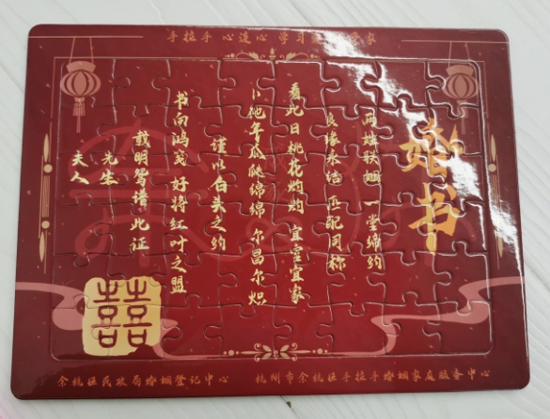 手拉手 心连心 学习 家
婚书
两姓联姻 一堂缔约
良缘永结 匹配同称
看此日桃花灼灼 宜室宜家
卜他年瓜瓞绵绵 尔昌尔炽
谨以白头之约
书向鸿笺 好将红叶之盟
载明鸳谱此证
先生
夫人
囍
余杭区民政局婚姻登记中心 杭州市余杭区手拉手婚姻家庭服务中心